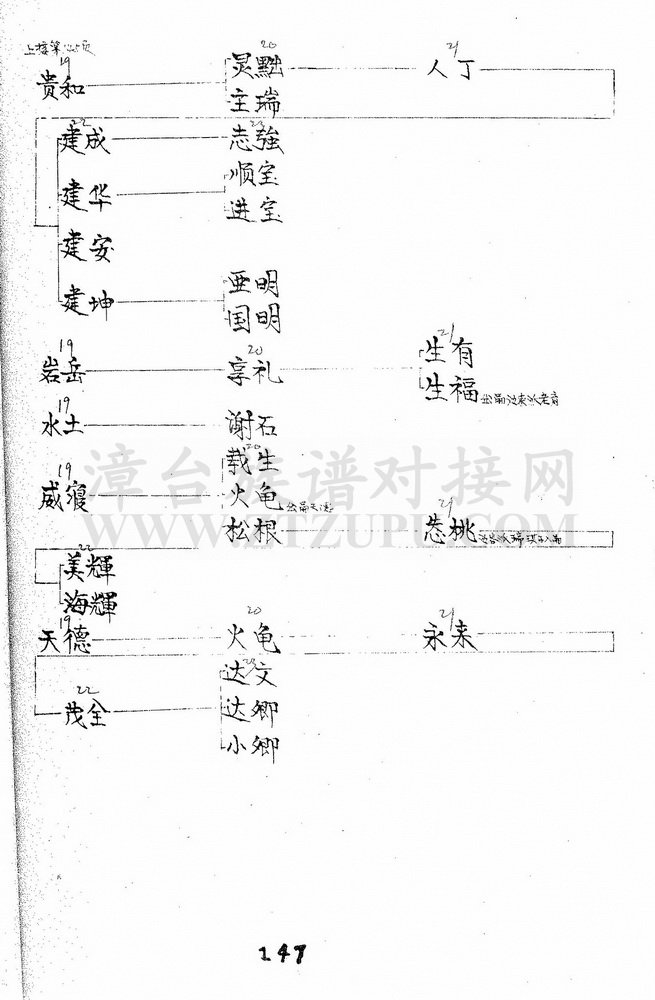 上接第125页
19 20 21
贵和 灵黜 人丁
主瑞
22 23
建成 志強
建华 顺宝
进宝
建安
建坤 亜明
国明
19 20 21
岩岳 享礼 生有
生福
19
水土 谢石
19 20
威寝 载生
火龟
21
松根 慈桃
22
美輝
海輝
19 20 21
天德 火龟 永来
22 23
茂全 达文
达卿
小卿
漳台族谱对接网
WWW.STZUPU.COM
147